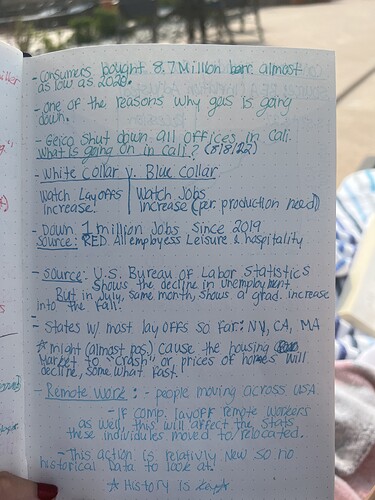 - Consumers bought 8.7 Million barr. almost
as low as 2020.
- one of the reasons why gas is going
down.
- Geico shut down all offices in Cali.
What is going on in Cali? (8/8/22)
- White Collar v. Blue Collar
Watch Layoffs | Watch Jobs
Increase! | Increase (per. production need)
- Down 1 million Jobs since 2019
Source: RED. All employess Leisure & hospitality
- Source: U.S. Bureau of Labor Statistics
Shows the decline in unemployment
But in July, same month, shows a grad. increase
into the Fall!
- States w/ most lay offs so far: NV, CA, MA
☆ might (almost pos) cause the housing
Market to "crash" or prices of homes will
decline, some what fast!
- Remote Work: - people moving across USA.
- IF comp. layoff remote workers
as well, this will affect the stats.
these individules moved to/relocated.
- This action is relativly new so no
historical data to look at.
☆ History is key☆